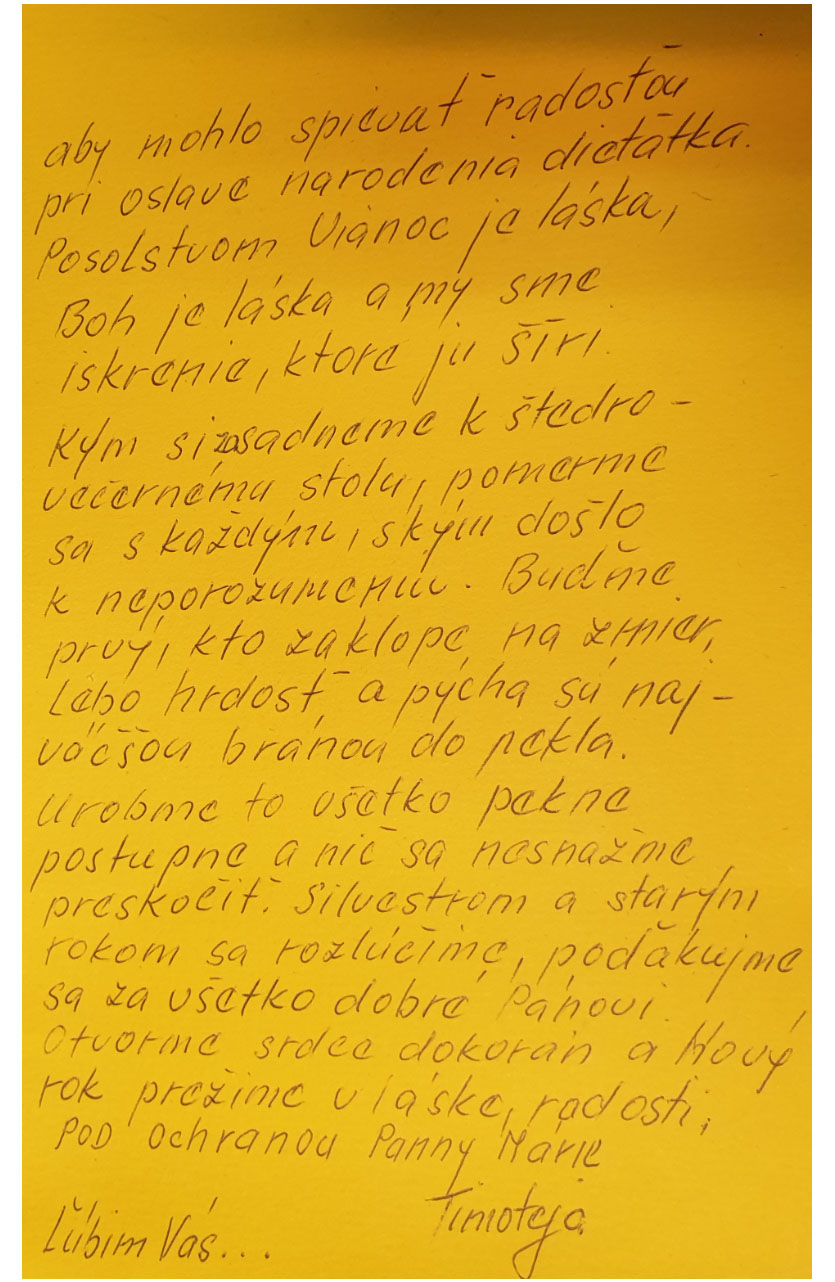 aby mohlo spievať radosťou
pri oslave narodenia dieťatka.
Posolstvom Vianoc je láska,
Boh je láska a my sme
iskrenie, ktoré ju šíri.
Kým si zasadneme k štedro-
večernému stolu, pomerme
sa s každým, s kým došlo
k neporozumeniu. Buďme
prvý, kto zaklope na zmier,
Lebo hrdosť a pýcha sú naj-
väčšou bránou do pekla.
Urobme to všetko pekne
postupne a nič sa nesnažme
preskočiť. Silvestrom a starým
rokom sa rozlúčime, poďakujme
sa za všetko dobré Pánovi.
Otvorme srdce dokorán a Nový
rok prežime v láske, radosti,
POD ochranou Panny Márie
Ľúbim Vás... Timoteja